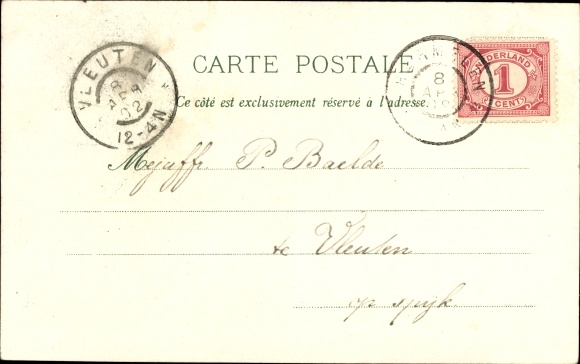 VLEUTEN
8
APR
02
12-4N
CARTE POSTALE
Ce côté est exclusivement réservé à l'adresse.
8
NEDERLAND
1
CENT
Mejuffr. P. Baelde
te Vleuten
op spijk.